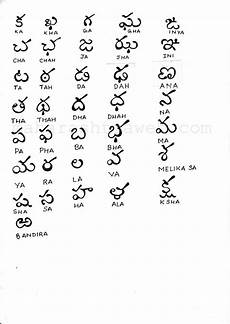 క ఖ గ ఘ ఙ
KA KHA GA GHA INYA
చ ఛ జ ఝ ఞ
CHA CHAH JA JHA INI
ట ఠ డ ఢ ణ
TA TAH DA DAH ANA
త థ ద ధ న
THA THAH DHA DHAH NA
ప ఫ బ భ మ
PA PHA BA BHA MA
య ర ల వ శ
YA RA LA VA MELIKA SA
ష స హ ళ క్ష
SHA SA HA ALA KSHA
ఱ
BANDIRA